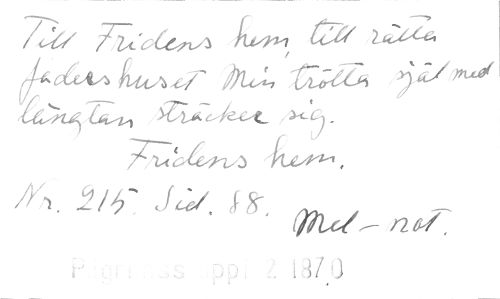 Till Fridens hem, till rätta
fadershuset Min trötta själ med
längtan sträcker sig.
Fridens hem.
Nr. 215. Sid. 88.
Mel-not.
uppl 2 1870